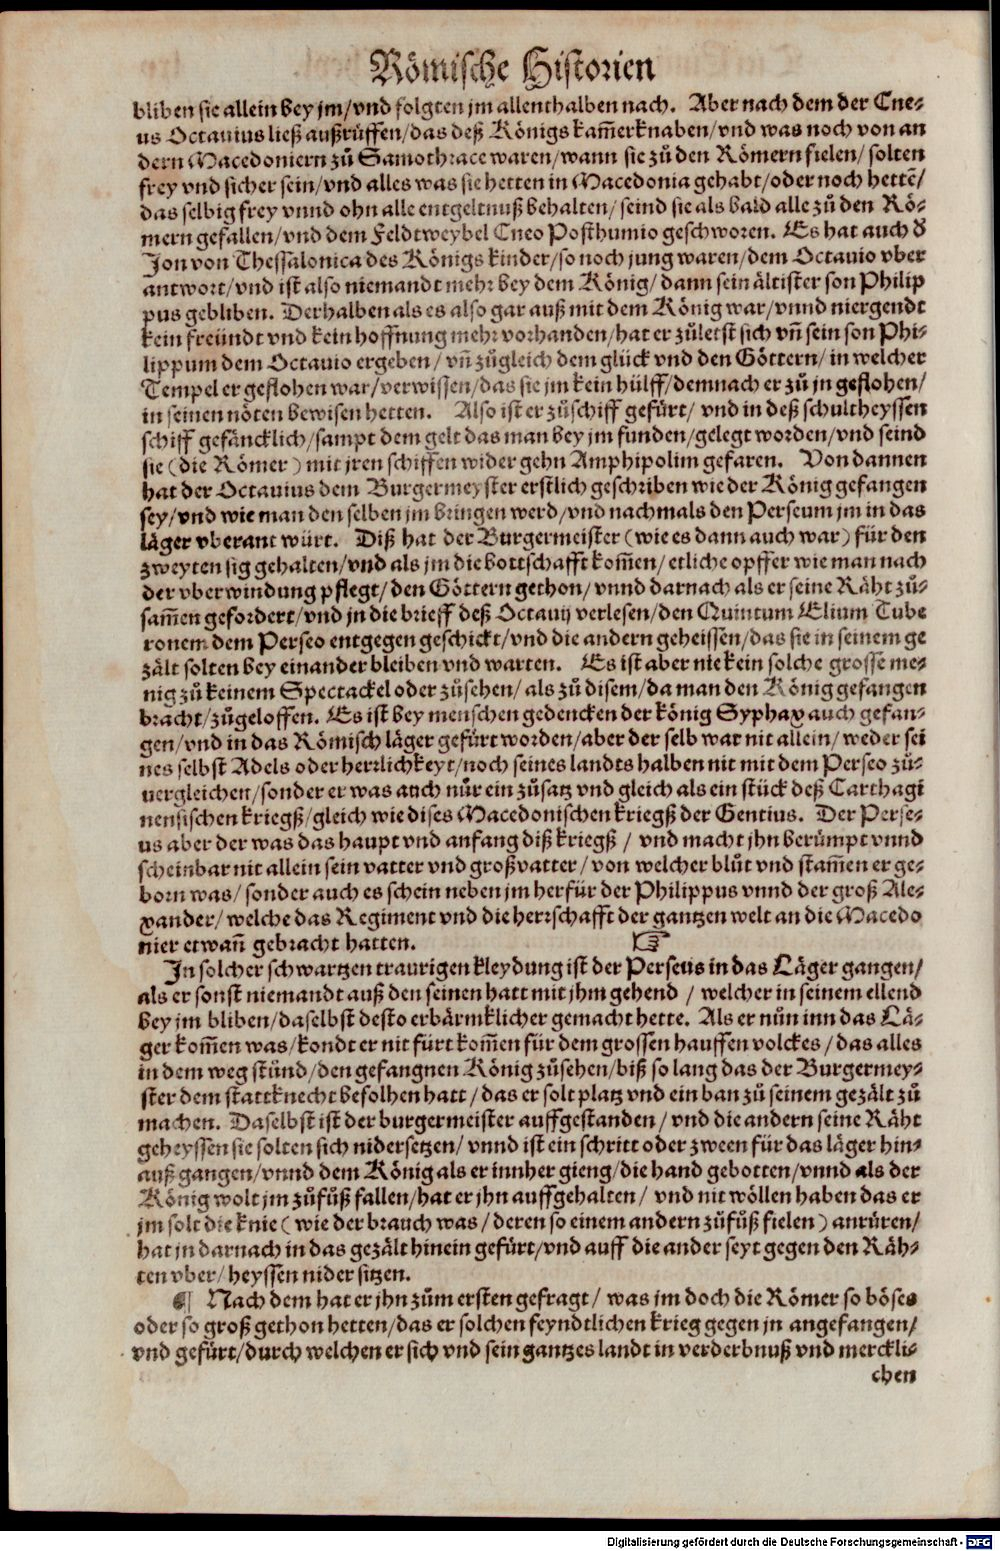 Römische Historien
bliben sie allein bey jm/vnd folgten jm allenthalben nach. Aber nach dem der Cne-
us Octauius ließ außrüffen/das deß Königs kam̃erknaben/vnd was noch von an
dern Macedoniern zů Samothrace waren/wann sie zů den Römern fielen/ solten
frey vnd sicher sein/vnd alles was sie hetten in Macedonia gehabt/oder noch hettẽ/
das selbig frey vnnd ohn alle entgeltnuß behalten/ seind sie als bald alle zů den Rö-
mern gefallen/vnd dem Feldtweybel Cneo Posthumio geschworen. Es hat auch d̕
Jon von Thessalonica des Königs kinder/so noch jung waren/dem Octauio vber
antwort/vnd ist also niemandt mehr bey dem König/ dann sein ältister son Philip
pus gebliben. Derhalben als es also gar auß mit dem König war/vnnd niergendt
kein freündt vnd kein hoffnung mehr vorhanden/hat er zůletst sich vñ sein son Phi-
lippum dem Octauio ergeben/ vñ zůgleich dem glück vnd den Göttern/ in welcher
Tempel er geflohen war/verwissen/das sie jm kein hülff/demnach er zů jn geflohen/
in seinen nöten bewisen hetten. Also ist er zůschiff gefürt/ vnd in deß schultheyssen
schiff gefäncklich/sampt dem gelt das man bey jm funden/gelegt worden/vnd seind
sie (die Römer) mit jren schiffen wider gehn Amphipolim gefaren. Von dannen
hat der Octauius dem Burgermeyster erstlich geschriben wie der König gefangen
sey/vnd wie man den selben jm bringen werd/vnd nachmals den Perseum jm in das
läger vberant würt. Diß hat der Burgermeister (wie es dann auch war) für den
zweyten sig gehalten/vnd als jm die bottschafft kom̃en/ etliche opffer wie man nach
der vberwindung pflegt/den Göttern gethon/vnnd darnach als er seine Räht zů-
sam̃en gefordert/vnd jn die brieff deß Octauij verlesen/den Quintum Elium Tube
ronem dem Perseo entgegen geschickt/vnd die andern geheissen/das sie in seinem ge
zält solten bey einander bleiben vnd warten. Es ist aber nie kein solche grosse me-
nig zů keinem Spectackel oder zůsehen/ als zů disem/da man den König gefangen
bracht/zůgeloffen. Es ist bey menschen gedencken der könig Syphax auch gefan-
gen/vnd in das Römisch läger gefürt worden/aber der selb war nit allein/ weder sei
nes selbst Adels oder herrlichkeyt/noch seines landts halben nit mit dem Perseo zů-
uergleichen/sonder er was auch nůr ein zůsatz vnd gleich als ein stück deß Carthagi
nensischen kriegß/gleich wie dises Macedonischen kriegß der Gentius. Der Perse-
us aber der was das haupt vnd anfang diß kriegß / vnd macht jhn berümpt vnnd
scheinbar nit allein sein vatter vnd großvatter/ von welcher blůt vnd stam̃en er ge-
born was/ sonder auch es schein neben jm herfür der Philippus vnnd der groß Ale-
xander/ welche das Regiment vnd die herrschafft der gantzen welt an die Macedo
nier etwañ gebracht hatten. ☞
In solcher schwartzen traurigen kleydung ist der Perseus in das Läger gangen/
als er sonst niemandt auß den seinen hatt mit jhm gehend / welcher in seinem ellend
bey jm bliben/daselbst desto erbärmklicher gemacht hette. Als er nůn inn das Lä-
ger kom̃en was/kondt er nit fürt kom̃en für dem grossen hauffen volckes / das alles
in dem weg stůnd/den gefangnen König zůsehen/biß so lang das der Burgermey-
ster dem stattknecht befolhen hatt/ das er solt platz vnd ein ban zů seinem gezält zů
machen. Daselbst ist der burgermeister auffgestanden/ vnd die andern seine Räht
geheyssen sie solten sich nidersetzen/ vnnd ist ein schritt oder zween für das läger hin-
auß gangen/vnnd dem König als er innher gieng/die hand gebotten/vnnd als der
König wolt jm zůfůß fallen/hat er jhn auffgehalten/ vnd nit wöllen haben das er
jm solt die knie (wie der brauch was/deren so einem andern zůfůß fielen) anrüren/
hat jn darnach in das gezält hinein gefürt/vnd auff die ander seyt gegen den Räh-
ten vber/heyssen nider sitzen.
¶ Nach dem hat er jhn zům ersten gefragt/ was jm doch die Römer so böses
oder so groß gethon hetten/das er solchen feyndtlichen krieg gegen jn angefangen/
vnd gefürt/durch welchen er sich vnd sein gantzes landt in verderbnuß vnd merckli-
chen
Digitalisierung gefördert durch die Deutsche Forschungsgemeinschaft - DFG